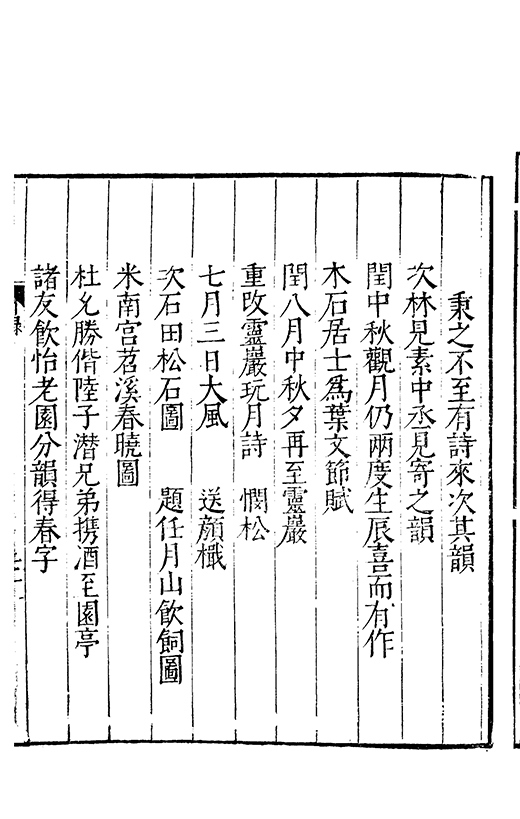 秉之不至有詩來次其韻
次林見素中丞見寄之韻
閏中秋觀月仍兩度生辰喜而有作
木石居士爲葉文節賦
閏八月中秋夕再至靈巖
重改靈巖玩月詩　憫松
七月三日大風　送顔檝
次石田松石圖　題任月山飲飼圖
米南宫苕溪春曉圖
杜允勝偕陸子潛兄弟携酒至園亭
諸友飲怡老園分韻得春字